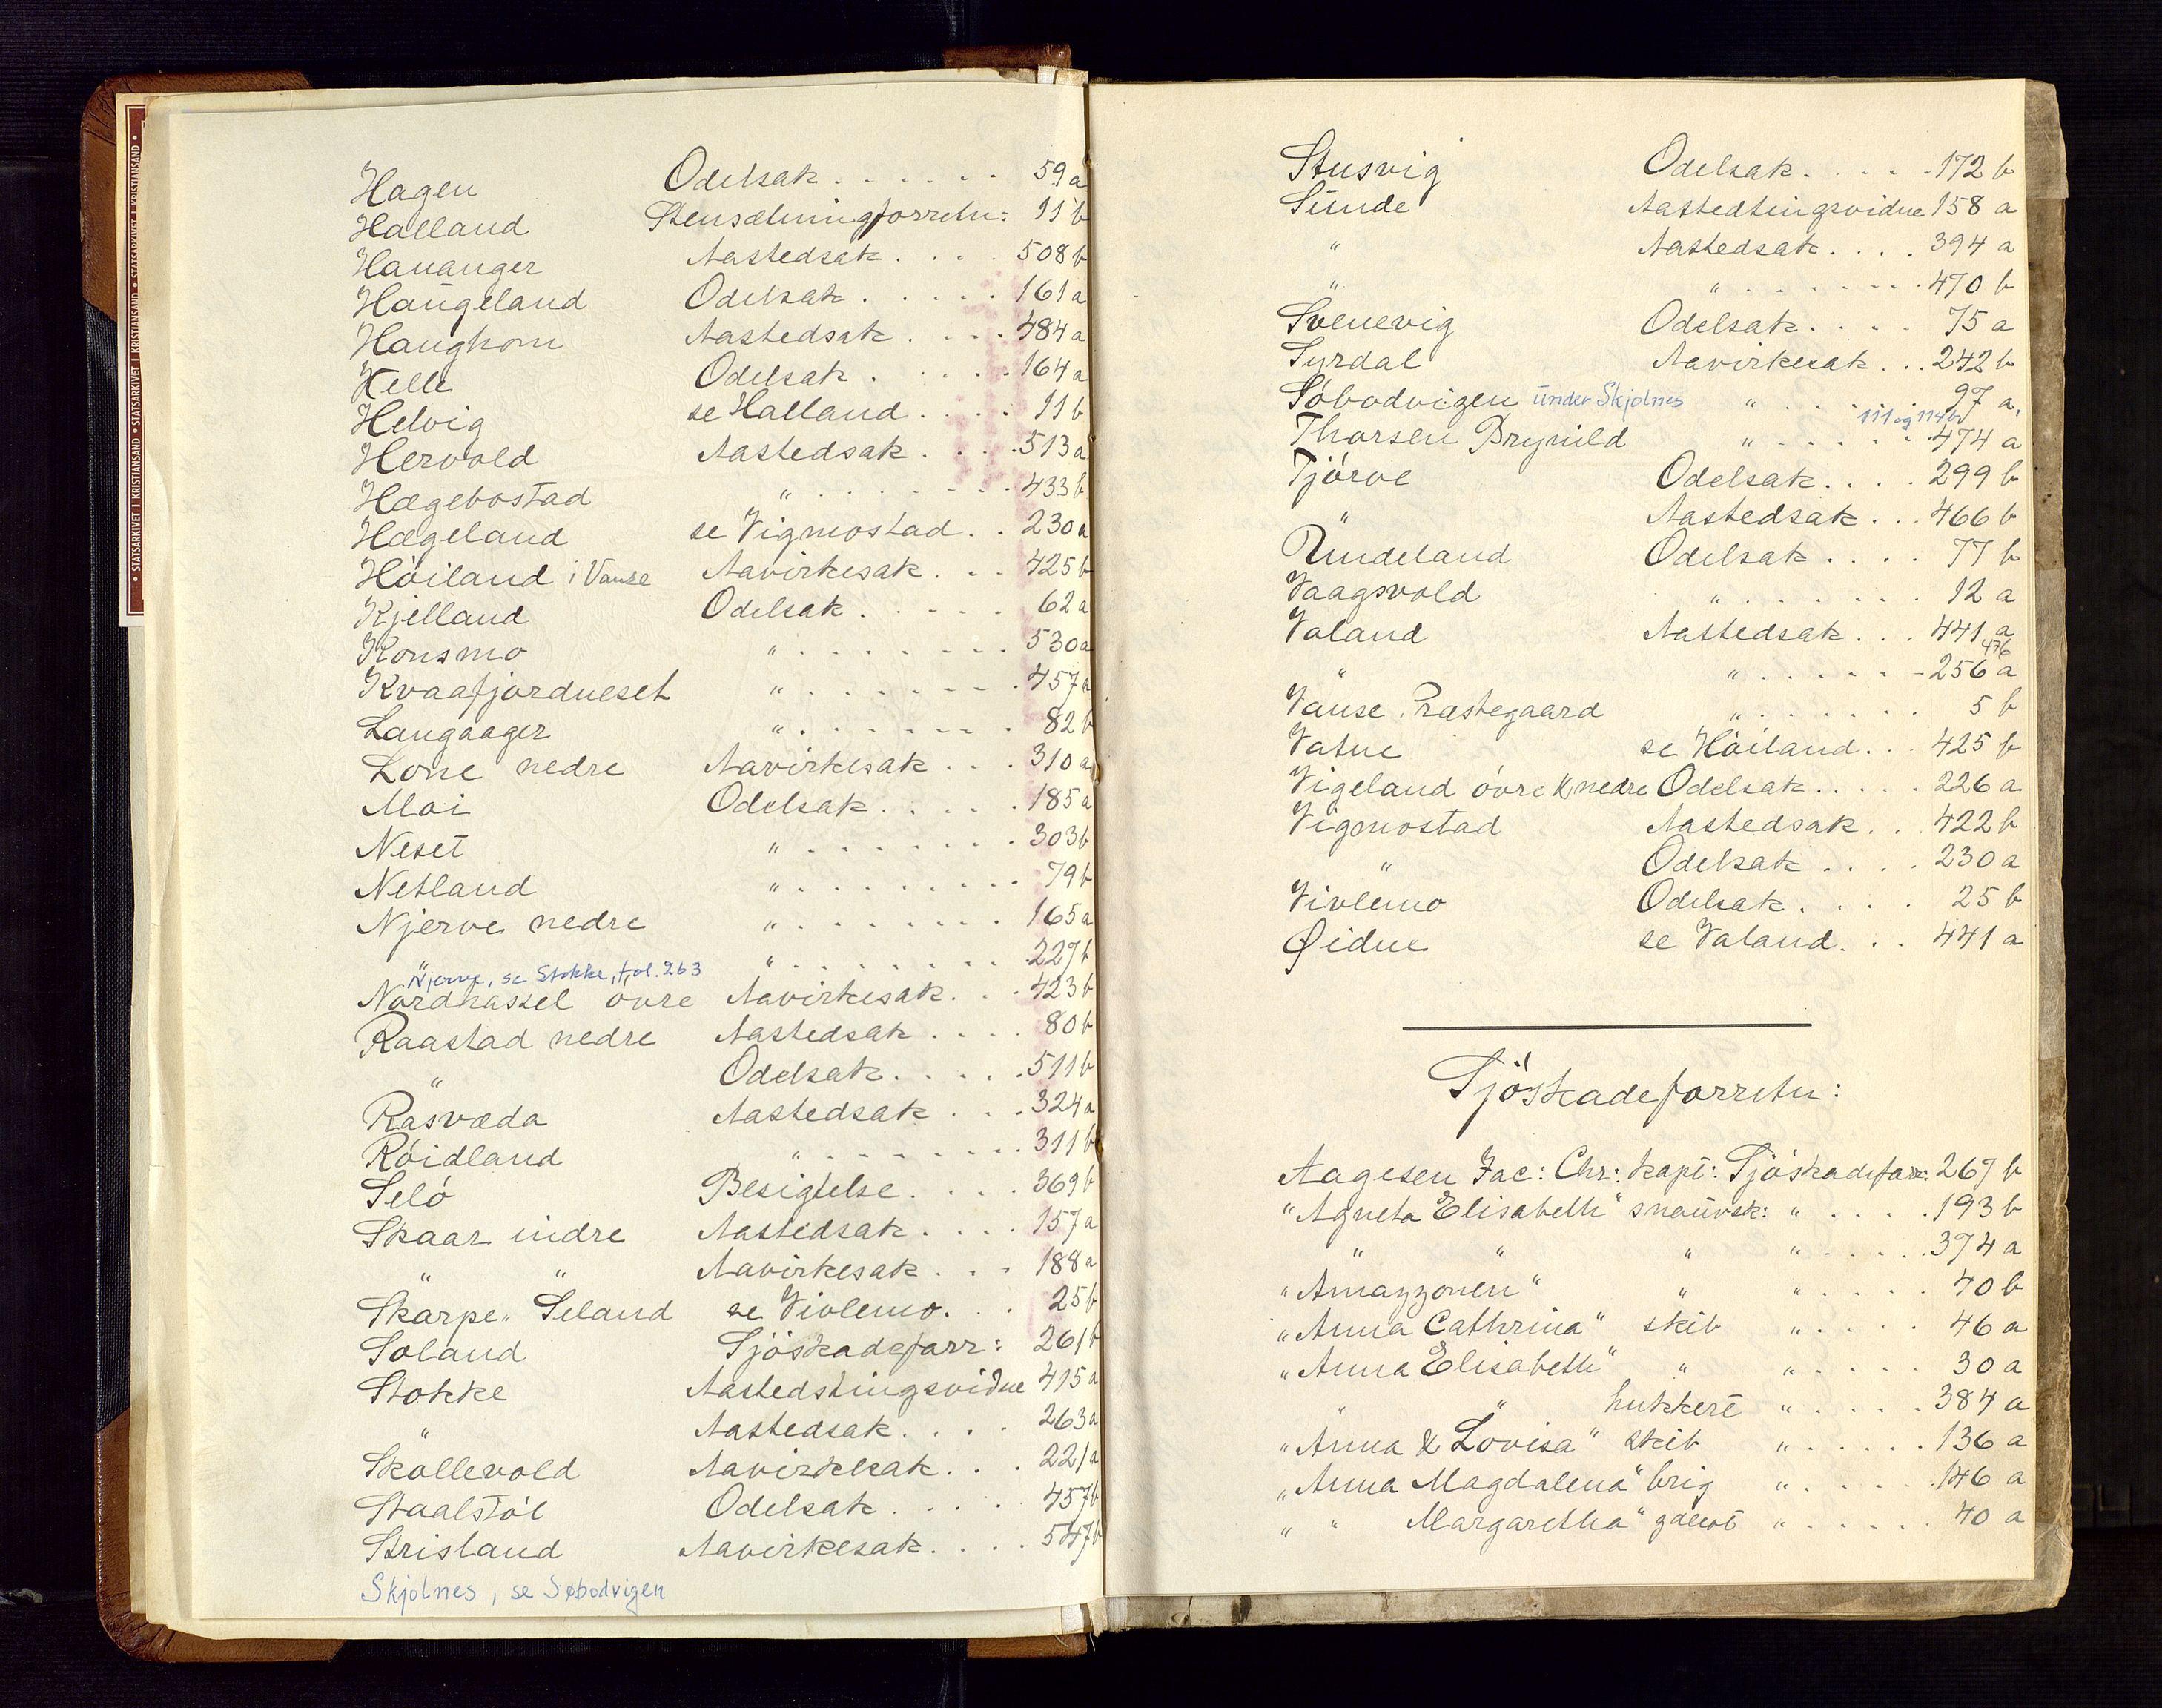 Hagen Odelsak . . . . . . 59 a
Halland Stensætningforretn: 11 b
Hananger Aastedsak . . . . 508 b
Haugeland Odelsak . . . . . 161 a
Haughom Aastedsak . . . . 484 a
Helle Odelsak . . . . . 164 a
Helvig se Halland . . . . 11 b
Hervold Aastedsak . . . . 513 a
Hægebostad " . . . . . . . . 433 b
Hægeland se Vigmostad . . 230 a
Höiland i Vanse Aavirkesak . . . 425 b
Kjelland Odelsak . . . . . 62 a
Konsmo " . . . . . . . . 530 a
Kvaafjordneset " . . . . . . . . 457 a
Langaager " . . . . . . . 82 b
Lone nedre Aavirkesak . . . 310 a
Moi Odelsak . . . . . 185 a
Neset " . . . . . . . . 303 b
Netland " . . . . . . . . . 79 b
Njerve nedre " . . . . . . . 165 a
" " . . . . . . . . . 227 b
Njerve, se Stokke, fol. 263
Nordhassel övre Aavirkesak . . . 423 b
Raastad nedre Aastedsak . . . . 80 b
" Odelsak . . . . . 511 b
Rasvæda Aastedsak . . . 324 a
Röidland " . . . . . . . . 311 b
Selö Besigtelse . . . . 369 b
Skaar indre Aastedsak . . . . 157 a
" " Aavirkesak . . . 188 a
Skarpe " Seland se Vivlemo . . . 25 b
Soland Sjöskadeforr: 261 b
Stokke Aastedstingsvidne 415 a
" Aastedsak . . . . 263 a
Skollevold Aavirkesak . . . 221 a
Staalstöl Odelsak . . . . . 457 b
Strisland Aavirkesak . . . . 547 b
Skjolnes, se Søbodvigen
Stusvig Odelsak . . . . . 172 b
Sunde Aastedtingsvidne 158 a
" Aastedsak . . . . 394 a
" " . . . . . . . . 470 b
Svenevig Odelsak . . . . 75 a
Syrdal Aavirkesak . . . 242 b
Söbodvigen under Skjolnes " . . . . . . 97 a,
111 og 114 b
Thorsen Brynild " . . . . . . . 474 a
Tjörve Odelsak . . . . 299 b
" Aastedsak . . . 466 b
Undeland Odelsak . . . . 77 b
Vaagsvold " . . . . . . . 12 a
Valand Aastedsak . . . 441 a
476
" " . . . . . . 256 a
Vanse Præstegaard " . . . . . . 5 b
Vatne se Höiland . . . 425 b
Vigeland övre & nedre Odelsak . . . . . 226 a
Vigmostad Aastedsak . . 422 b
" Odelsak . . . . 230 a
Vivlemo Odelsak . . . . 25 b
Øidne se Valand . . . 441 a
Sjöskadeforretn:
Aagesen Jac: Chr: kapt: Sjöskadeforr: 267 b
"Agneta Elisabeth" snauvsk: " . . . . . 193 b
" " " " . . . . . . 374 a
"Amazzonen" " " . . . . . 40 b
"Anna Cathrina" skib " . . . . . 46 a
"Anna Elisabeth" " " . . . . . 30 a
" " hukkert " . . . . . 384 a
"Anna & Lovisa" skib " . . . . . . 136 a
"Anna Magdalena" brig " . . . . . . 146 a
" " Margaretha" galeot " . . . . . . 40 a
• STATSARKIVET I KRISTIANSAND • STATSARKIVET I KRISTIANSAND • STATSARKIVET I KRISTIANSAND •